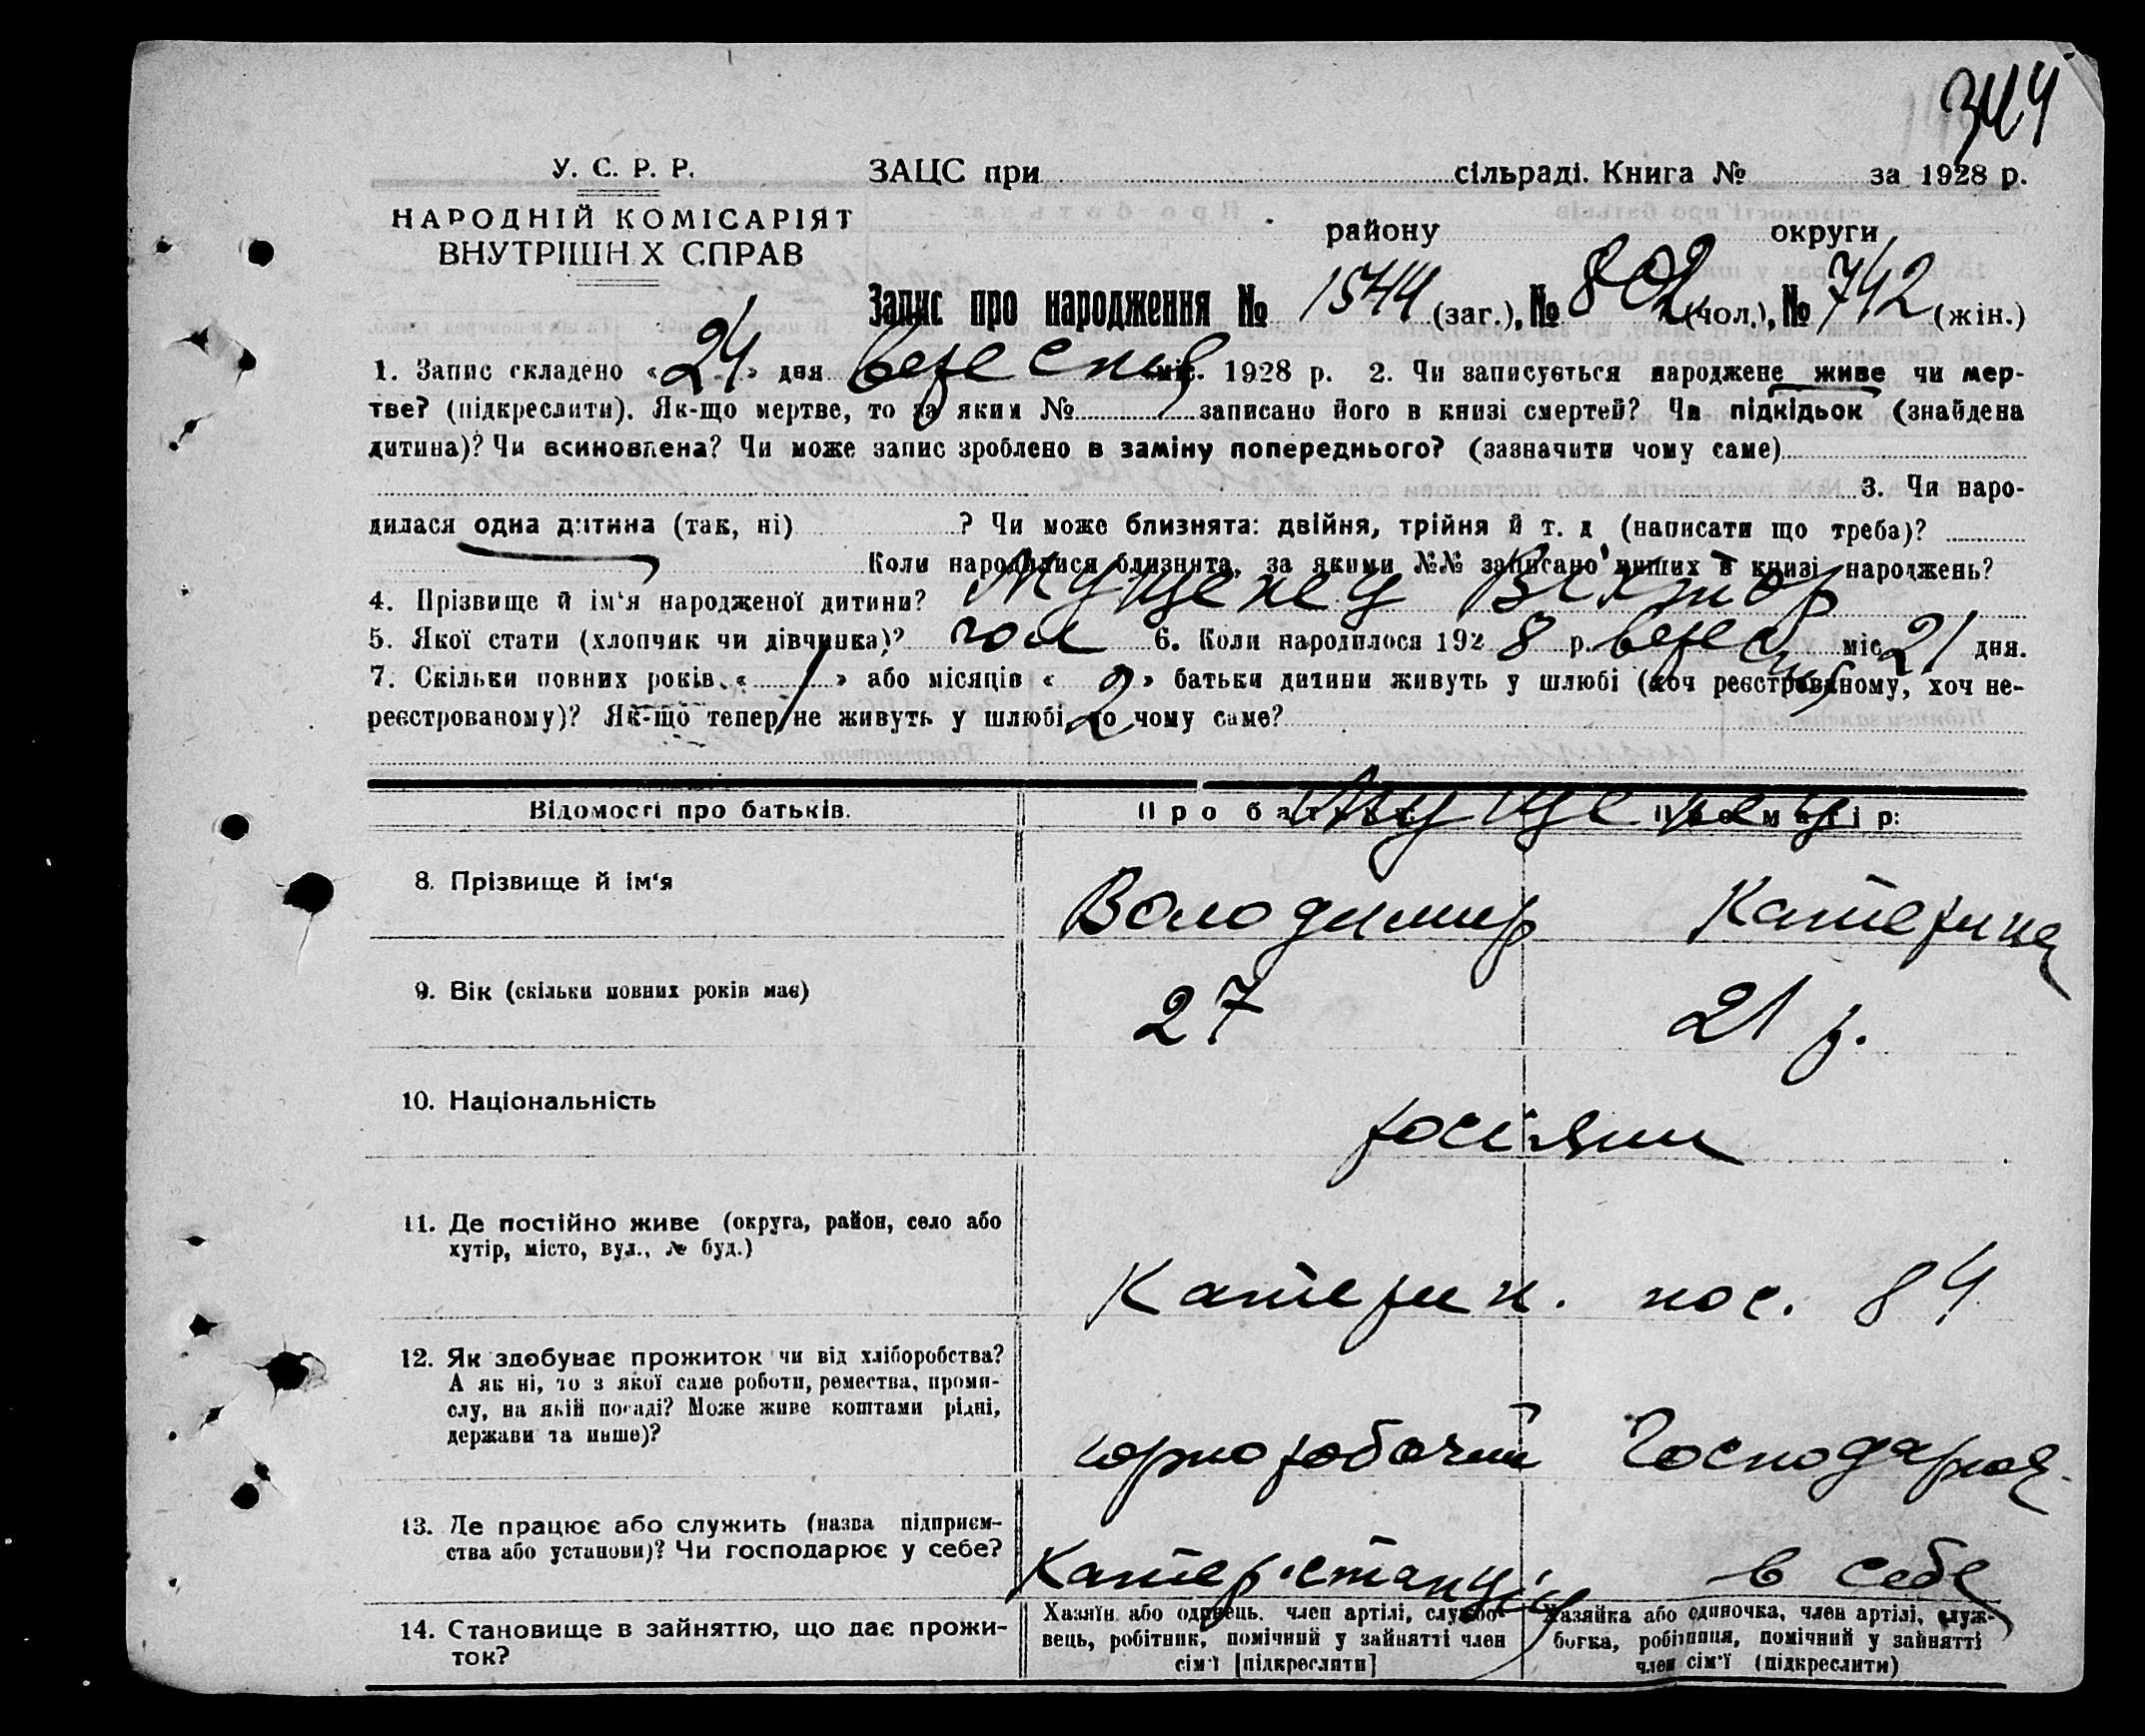 344
У. С. Р. Р. ЗАЦС при сільраді. Книга № за 1928 р.
НАРОДНІЙ КОМІСАРІЯТ
ВНУТРІШН Х СПРАВ
району округи
Запис про народження № 1544 (заг.), № 802 (чол.), № 742 (жін.)
1. Запис складено «24» дня вересня міс. 1928 р. 2. Чи записується народжене живе чи мер-
тве? (підкреслити). Як-що мертве, то за яким № записано його в книзі смертей? Чи підкідьок (знайдена
дитина)? Чи всиновлена? Чи може запис зроблено в заміну попереднього? (зазначити чому саме)
3. Чи наро-
дилася одна дитина (так, ні) ? Чи може близнята: двійня, трійня й т. д. (написати що треба)?
Коли народилися близнята, за якими №№ записано инших в книзі народжень?
4. Прізвище й ім‘я народженої дитини? Віктор
5. Якої стати (хлопчик чи дівчинка)? чол 6. Коли народилося 1928 р. вересня міс. 21 дня.
7. Скільки повних років « 1 » або місяців « 2 » батьки дитини живуть у шлюбі (хоч реєстрованому, хоч не-
реєстрованому)? Як-що тепер не живуть у шлюбі, то чому саме?
Відомості про батьків. Про батька: Про матір:
8. Прізвище й ім‘я Володимир Катерина
9. Вік (скільки повних років має) 27 21 р.
10. Національність росіяни
11. Де постійно живе (округа, район, село або
хутір, місто, вул., № буд.)
Катерин. пос. 84
12. Як здобуває прожиток чи від хліборобства?
А як ні, то з якої саме роботи, ремества, проми-
слу, на якій посаді? Може живе коштами рідні,
держави та инше)?
чорноробочий Господарка
13. Де працює або служить (назва підприєм-
ства або установи)? Чи господарює у себе?
Катер. станція в себе
14. Становище в зайняттю, що дає прожи-
ток?
Хазяїн або одинець, член артілі, службо-
вець, робітник, помічний у зайнятті член
сім‘ї [підкреслити]
Хазяйка або одиночка, член артілі, служ-
бовка, робітниця, помічний у зайнятті
член сім‘ї (підкреслити)